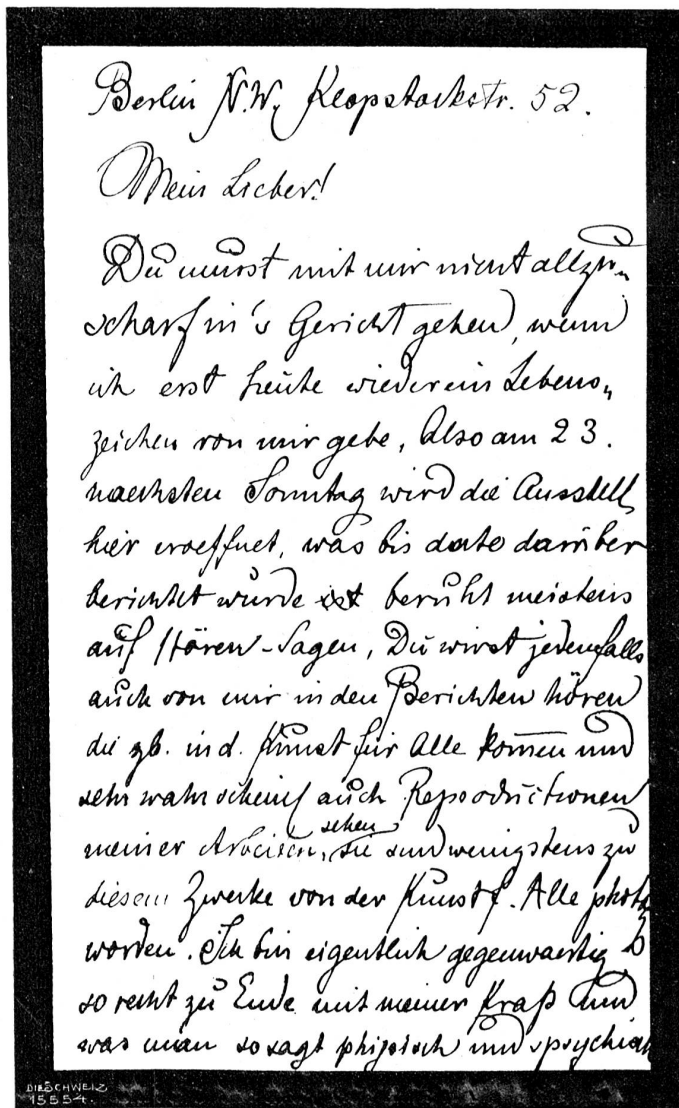 Berlin N.W. Klopstockstr. 52.
Mein Lieber!
Du musst mit mir nicht allzu„
scharf in's Gericht gehen, wenn
ich erst heute wieder ein Lebens„
zeichen von mir gebe, Also am 23.
naechsten Sonntag wird die Ausstell
hier eroeffnet, was bis dato darüber
berichtet wurde ist beruht meistens
auf Hören-Sagen, Du wirst jedenfalls
auch von mir in den Berichten hören
die zb. in d. Kunst für Alle komen und
sehr wahrscheinl auch Reproductionen
meiner Arbeiten, sehen sie sind wenigstens zu
diesem Zwecke von der Kunst f. Alle phot
worden. Ich bin eigentlich gegenwaertig
so recht zu Ende mit meiner Kraft und
was man so sagt phisisch und psychisch
DIE SCHWEIZ
15554.